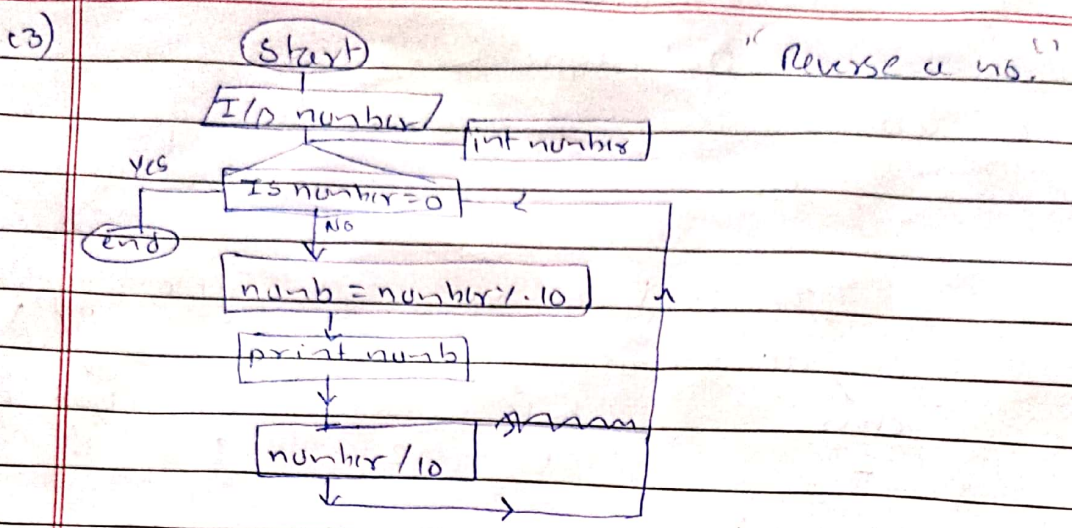 (3)
Start
" Reverse a no. "
I/O number
int number
Yes
Is number = 0
No
end
numb = number % 10
print numb
number / 10